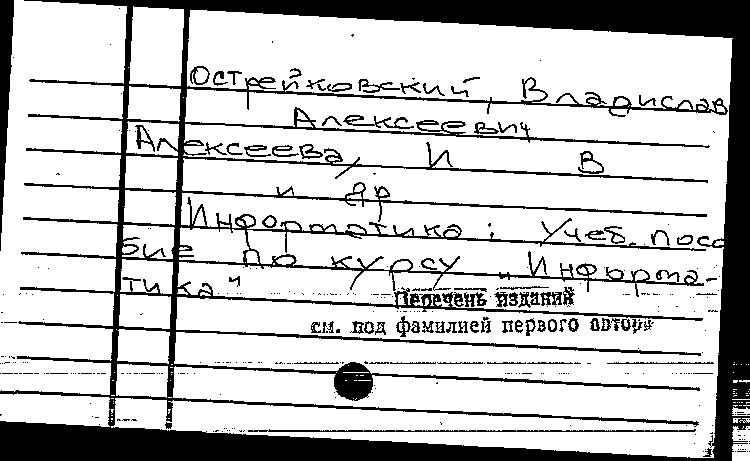 Острейковский, Владислав
Алексеевич
Алексеева, И В
и др.
Информатика : Учеб. посо
бие по курсу „Информа-
тика"
Перечень изданий
см. под фамилией первого автора